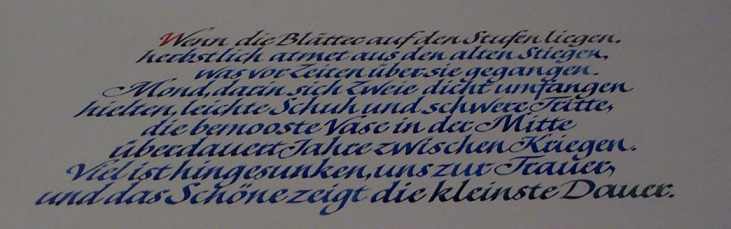 Wenn die Blätter auf den Stufen liegen.
herbstlich atmet aus den alten Stiegen,
was vor Zeiten über sie gegangen.
Mond, darin sich Zweie dicht umfangen
hielten, leichte Schuh und schwere Tritte,
die bemooste Vase in der Mitte
überdauert Jahre zwischen Kriegen.
Viel ist hingesunken, uns zur Trauer,
und das Schöne zeigt die kleinste Dauer.